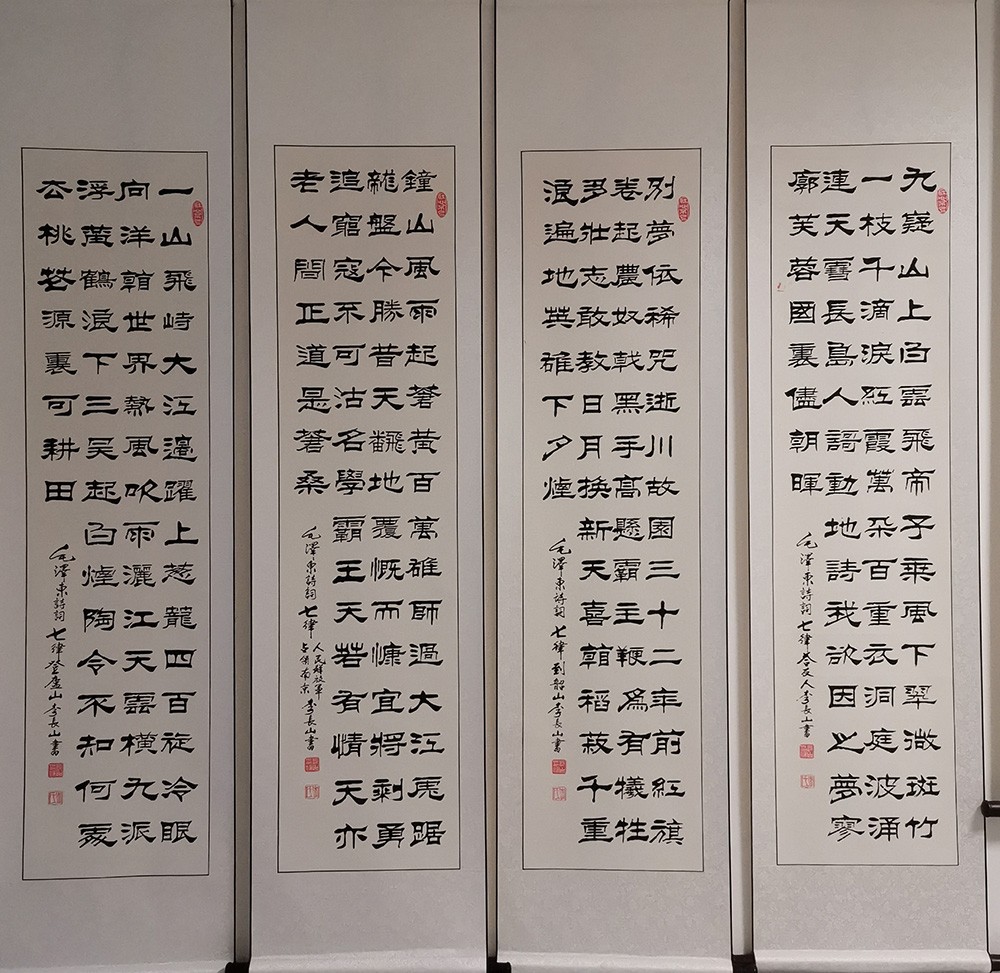 九疑山上白雲飛帝子乘風下翠微斑竹
一枝千滴淚紅霞萬朵百重衣洞庭波涌
連天雪長島人謌動地詩我欲因之夢寥
廓芙蓉國裏儘朝暉
毛澤東詩詞七律答友人李長山書
别夢依稀咒逝川故園三十二年前紅旗
卷起農奴戟黑手高懸霸主鞭爲有犧牲
多壯志敢教日月換新天喜睹稻菽千重
浪遍地英雄下夕煙
毛澤東詩詞七律到韶山李長山書
鐘山風雨起蒼黃百萬雄師過大江虎踞
龍盤今勝昔天翻地覆慨而慷宜將剩勇
追窮寇不可沽名學霸王天若有情天亦
老人間正道是蒼桑
毛澤東詩詞七律人民解放軍占領南京李長山書
一山飛峙大江邊躍上葱蘢四百旋冷眼
向洋看世界熱風吹雨灑江天雲橫九派
浮黃鶴浪下三吳起白煙陶令不知何處
去桃花源裏可耕田
毛澤東詩詞七律登廬山李長山書